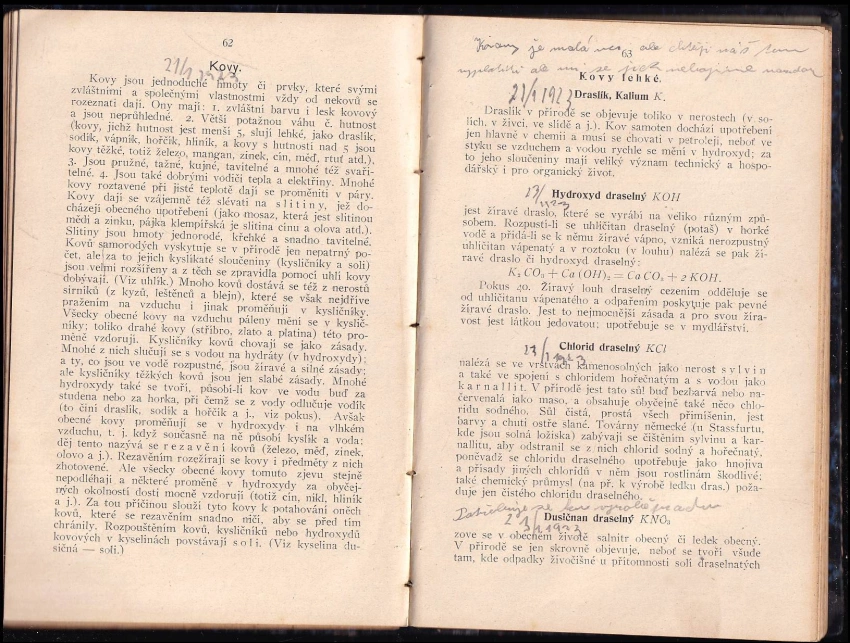 62
21/1 1923
Kovy.
Kovy jsou jednoduché hmoty či prvky, které svými
zvláštními a společnými vlastnostmi vždy od nekovů se
rozeznati dají. Ony mají: 1. zvláštní barvu i lesk kovový
a jsou neprůhledné. 2. Větší potažnou váhu č. hutnost
(kovy, jichž hutnost jest menší 5, slují lehké, jako draslík,
sodík, vápník, hořčík, hliník, a kovy s hutností nad 5 jsou
kovy těžké, totiž železo, mangan, zinek, cín, měď, rtuť atd.).
3. Jsou pružné, tažné, kujné, tavitelné a mnohé též svaři-
telné. 4. Jsou také dobrými vodiči tepla a elektřiny. Mnohé
kovy roztavené při jisté teplotě dají se proměniti v páry.
Kovy dají se vzájemně též slévati na slitiny, jež do-
cházejí obecného upotřebení (jako mosaz, která jest slitinou
mědi a zinku, pájka klempířská je slitina cínu a olova atd.).
Slitiny jsou hmoty jednorodé, křehké a snadno tavitelné.
Kovů samorodých vyskytuje se v přírodě jen nepatrný po-
čet, ale za to jejich kyslíkaté sloučeniny (kysličníky a soli)
jsou velmi rozšířeny a z těch se zpravidla pomocí uhlí kovy
dobývají. (Viz uhlík.) Mnoho kovů dostává se též z nerostů
sirníků (z kyzů, leštěnců a blejn), které se však nejdříve
pražením na vzduchu i jinak proměňují v kysličníky.
Všecky obecné kovy na vzduchu páleny mění se v kyslič-
níky; toliko drahé kovy (stříbro, zlato a platina) této pro-
měně vzdorují. Kysličníky kovů chovají se jako zásady.
Mnohé z nich slučují se s vodou na hydráty (v hydroxydy);
a ty, co jsou ve vodě rozpustné, jsou žíravé a silné zásady;
ale kysličníky těžkých kovů jsou jen slabé zásady. Mnohé
hydroxydy také se tvoří, působí-li kov ve vodu buď za
studena nebo za horka, při čemž se z vody odlučuje vodík
(to činí draslík, sodík a hořčík a j., viz pokus). Avšak
obecné kovy proměňují se v hydroxydy i na vlhkém
vzduchu, t. j. když současně na ně působí kyslík a voda;
děj tento nazývá se rezavění kovů (železo, měď, zinek,
olovo a j.). Rezavěním rozežírají se kovy i předměty z nich
zhotovené. Ale všecky obecné kovy tomuto zjevu stejně
nepodléhají a některé proměně v hydroxydy za obyčej-
ných okolností dosti mocně vzdorují (totiž cín, nikl, hliník
a j.). Za tou příčinou slouží tyto kovy k potahování oněch
kovů, které se rezavěním snadno ničí, aby se před tím
chránily. Rozpouštěním kovů, kysličníků nebo hydroxydů
kovových v kyselinách povstávají soli. (Viz kyselina du-
sičná — soli.)
je malá ves, ale chtějí náš
63
ale se
Kovy lehké.
21/1 1923
Draslík, Kalium K.
Draslík v přírodě se objevuje toliko v nerostech (v so-
lích, v živci, ve slídě a j.). Kov samoten dochází upotřebení
jen hlavně v chemii a musí se chovati v petroleji, neboť ve
styku se vzduchem a vodou rychle se mění v hydroxyd; za
to jeho sloučeniny mají veliký význam technický a hospo-
dářský i pro organický život.
23/1 1923
Hydroxyd draselný KOH
jest žíravé draslo, které se vyrábí na veliko různým způ-
sobem. Rozpustí-li se uhličitan draselný (potaš) v horké
vodě a přidá-li se k němu žíravé vápno, vzniká nerozpustný
uhličitan vápenatý a v roztoku (v louhu) nalézá se pak ží-
ravé draslo či hydroxyd draselný:
K₂ CO₃ + Ca (OH)₂ = Ca CO₃ + 2 KOH.
Pokus 40. Žíravý louh draselný cezením odděluje se
od uhličitanu vápenatého a odpařením poskytuje pak pevné
žíravé draslo. Jest to nejmocnější zásada a pro svou žíra-
vost jest látkou jedovatou; upotřebuje se v mydlářství.
23/1 1923
Chlorid draselný KCl
nalézá se ve vrstvách kamenosolných jako nerost sylvin
a také ve spojení s chloridem hořečnatým a s vodou jako
karnallit. V přírodě jest tato sůl buď bezbarvá nebo na-
červenalá jako maso, a obsahuje obyčejně také něco chlo-
ridu sodného. Sůl čistá, prostá všech přimíšenin, jest
barvy a chuti ostře slané. Továrny německé (u Stassfurtu,
kde jsou solná ložiska) zabývají se čištěním sylvinu a kar-
nallitu, aby odstranil se z nich chlorid sodný a hořečnatý,
poněvadž se chloridu draselného upotřebuje jako hnojiva
a přísady jiných chloridů v něm jsou rostlinám škodlivé;
také chemický průmysl (na př. k výrobě ledku dras.) poža-
duje jen čistého chloridu draselného.
23/1 1923
Dusičnan draselný KNO₃
zove se v obecném životě salnitr obecný či ledek obecný.
V přírodě se jen skrovně objevuje, neboť se tvoří všude
tam, kde odpadky živočišné u přítomnosti solí draselnatých